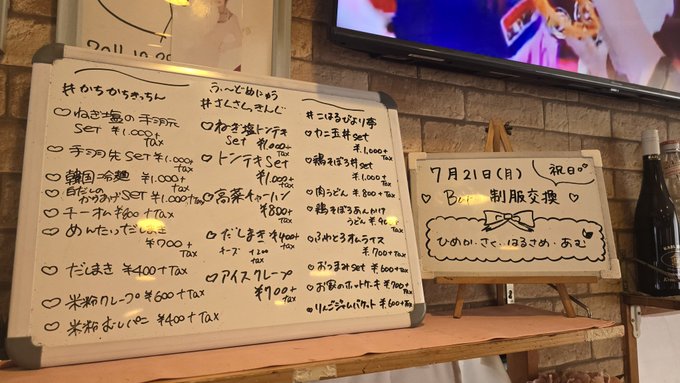 2011.10.25
#かちかちきっちん
♡ ねぎ塩の手羽元
Set ¥1.000+Tax
♡ 手羽先Set ¥1.000+tax
♡ 韓国冷麺 ¥1.000+Tax
♡ 白だしの
からあげSet ¥1.000+Tax
♡ チーオム ¥600+Tax
♡ めんたいだしまき
¥700+Tax
♡ だしまき ¥400+Tax
♡ 米粉クレープ ¥600+Tax
♡ 米粉むしパン ¥400+Tax
う、～どめにゅう
#さくさくっきんぐ
♡ ねぎ塩トンテキ
Set ¥1.000+Tax
♡ トンテキSet
¥1.000+Tax
♡ 高菜チャーハン
¥800+Tax
♡ だしまき ¥400+Tax
チーズ +200
♡ アイスクレープ
¥700+Tax
#こはるびより亭
♡ カニ玉丼set
¥1.000+Tax
♡ 鶏そぼろ丼set
¥1.000+Tax
♡ 肉うどん ¥800+Tax
♡ 鶏そぼろあんかけ
うどん
♡ ふわとろオムライス
¥700+Tax
♡ おつまみset ¥600+Tax
♡ お家のホットケーキ ¥700+Tax
♡ りんごジャムバケット ¥600+Tax
7月21日(月)
祝日。
♡ 制服交換 ♡
ひめか・さく・はるさめ・あむ